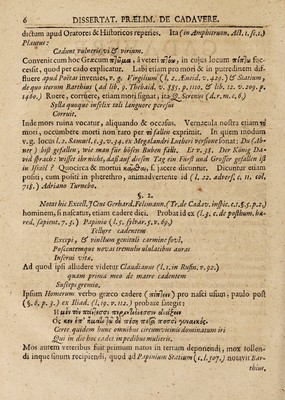 6 DISSERTAT. PRÆLIM. DE CADAVERE.
dictum apud Oratores & Historicos reperies. Ita (in Amphitruon. Act. 1. sc. 1.)
Plautus:
Cadunt vulneris vi & virium.
Convenit cum hoc Græcum πτῶμα, à veteri πίπτω, in cujus locum πίπτω suc-
cessit, quod per cado explicatur. Labi etiam pro mori & in putredinem dif-
fluere apud Poëtas invenies, v. g. Virgilium (l. 2. Æneid. v. 429.) & Statium,
de quo iterum Barthius (ad lib. 9. Thebaid. v. 535. p. 1110. & lib. 12. v. 209. p.
1460.) Ruere, corruere, etiam mori signat; ita Q. Serenus (d. r. m. c. 6.)
Sylla quoque infelix tali languore peresus
Corruit.
Inde mors ruina vocatur, aliquando & occasus. Vernacula nostra etiam τὸ
mori, occumbere morti non raro per τὸ fallen exprimit. In quem modum
v. g. locus l. 2. Samuel. c. 3. v. 34. ex Megalandri Lutheri versione sonat: Du (Ab-
ner) bist gefallen, wie man für bösen Buben fällt. Et v. 38. Der König Da-
vid sprach: wisset ihr nicht, daß auf diesen Tag ein Fürst und Grosser gefallen ist
in Israël? Quocirca & mortui s. jacere dicuntur. Dicuntur etiam
positi, cum positi in pherethro, animadvertente id (l. 22. advers. c. 11. col.
718.) Adriano Turnebo.
§. 2.
Notat hic Excell. JCtus Gerhard. Feltmann. (Tr. de Cadav. inspic. c. 1. §. 5. p. 2.)
hominem, si nascatur, etiam cadere dici. Probat id ex (l. 3. c. de posthum. hæ-
red. sapient. 7. 5.) Papinio (l. 5. sylvar. 5. v. 69.)
Tellure cadentem
Excepi, & vinctum genitali carmine fovi,
Poscentemque novas tremulis ululatibus auras
Inserui vita.
Ad quod ipsi alludere videtur Claudianus (l. 1. in Rufin. v. 92.)
quam prima meo de matre cadentem
Suscepi gremio.
Ipsum Homerum verbo græco cadere (πίπτειν) pro nasci usum, paulo post
(§. 8. p. 3.) ex Iliad. (l. 19. v. 112.) probare satagit:
Certe quidem hunc omnibus circumvicinis dominatum iri
Qui in die hoc cadet in pedibus mulieris.
Mos autem veteribus fuit primum natos in terram deponendi, mox tollen-
di inque sinum recipiendi, quod ad Papinium Statium (c. l. 507.) notavit Bar-
thius,